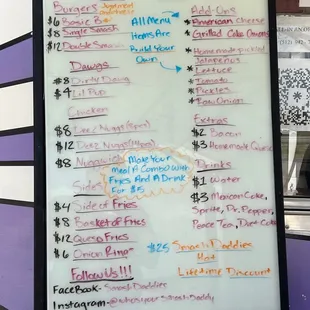 Burgers
$6 Basic B
$8 Single Smash
$12 Double Smash
Dawgs
$8 Dirty Dawg
$4 Lil Pup
Chicken
$8
$12
$8
Make Your
Meal A Combo with
Fries And A Drink
For $5
Sides
$4 Side of Fries
$8 Basket of Fries
$12 Queso Fries
$6 Onion Rings
Follow Us!!!
FaceBook- Smash Daddies
Instagram-
All Menu
Items Are
Build Your
Own
Add-Ons
*American Cheese
*Grilled Onions
*Homemade pickled
Jalapeños
*Lettuce
*Tomato
*Pickles
*Raw Onion
Extras
$2 Bacon
$3 Homemade Queso
Drinks
$1 Water
$3 Mexican Coke,
Sprite, Dr. Pepper,
Peace Tea, Diet Coke
$25 Smash Daddies
Hat
Lifetime Discount